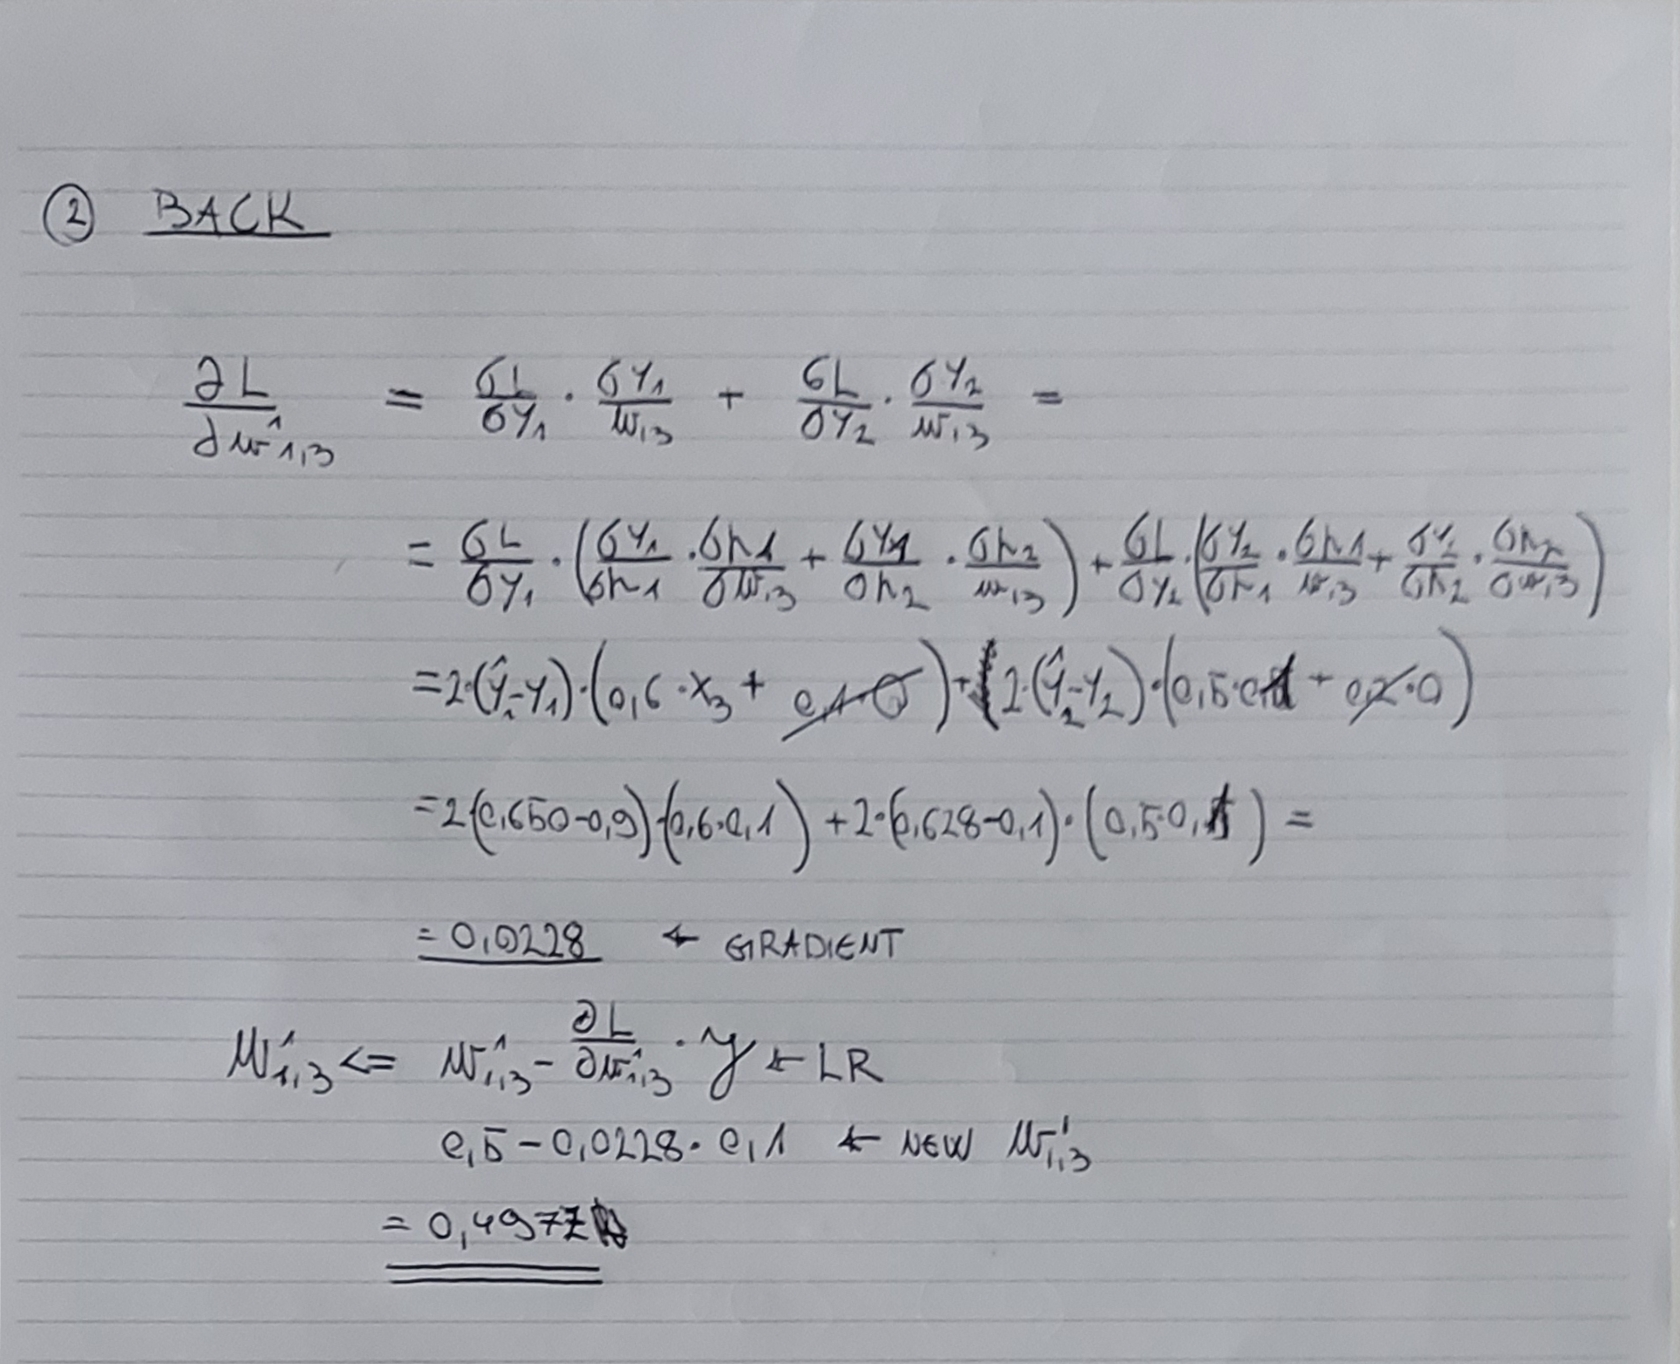 ② BACK
∂L/∂w¹1,3 = σL/σy1 · σy1/w,3 + σL/σy2 · σy2/w,3 =
= σL/σy1 · (σy1/σh1 · σh1/σw,3 + σy1/σh2 · σh2/w,3) + σL/σy2 · (σy2/σh1 · σh1/w,3 + σy2/σh2 · σh2/σw,3)
= 2·(ŷ1-y1)·(0,6·x3 + 0,1·0) + 2·(ŷ2-y2)·(0,5·0,1 + 0,2·0)
= 2(0,650-0,9)·(0,6·0,1) + 2·(0,628-0,1)·(0,5·0,1) =
= 0,0228 ← GRADIENT
w¹1,3 <= w¹1,3 - ∂L/∂w¹1,3 · y ← LR
0,5 - 0,0228 · 0,1 ← NEW w¹1,3
= 0,4977